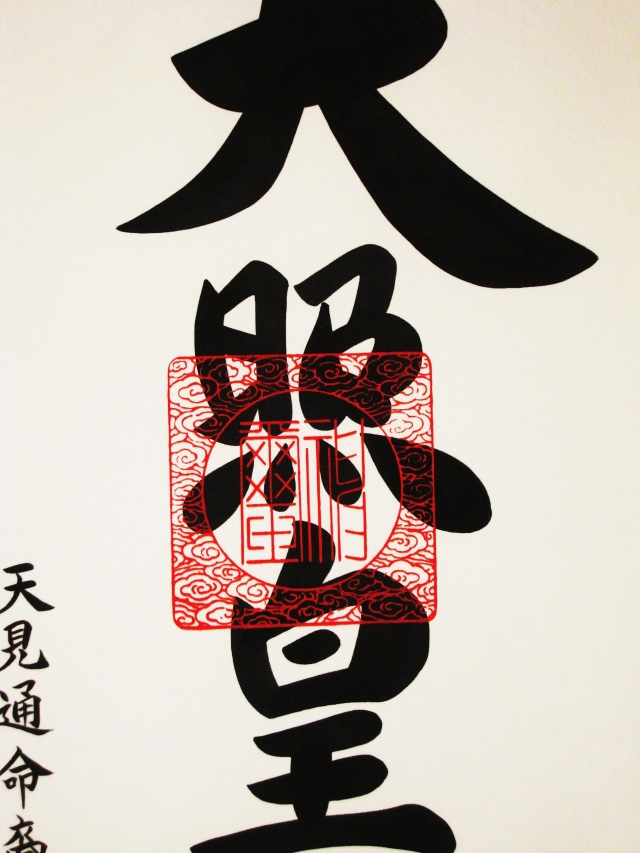 大照皇
天見通命裔